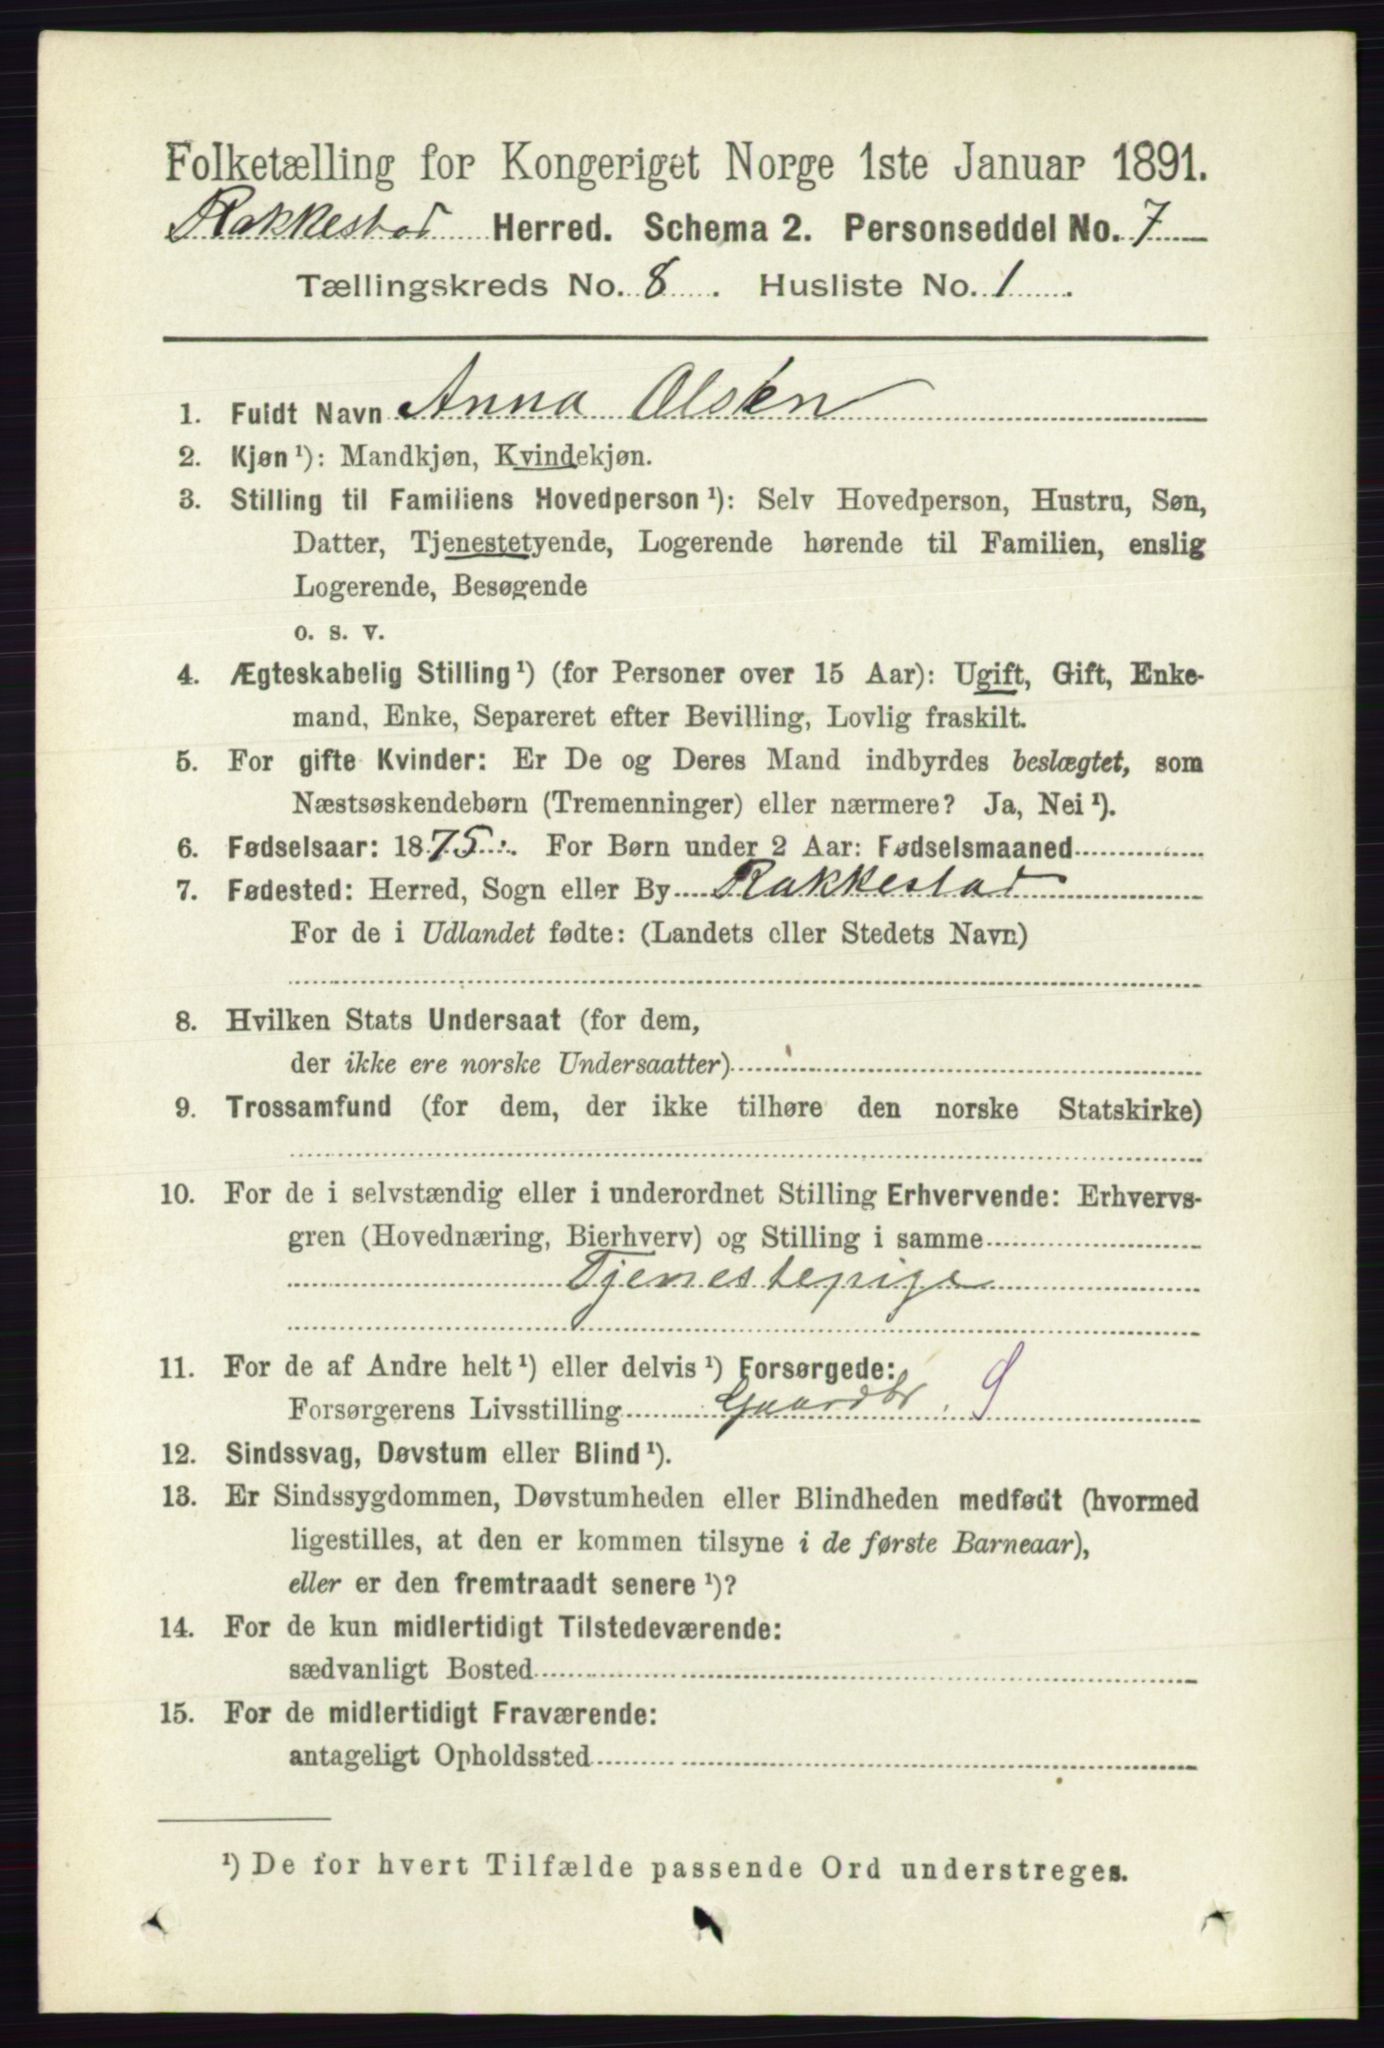 Folketælling for Kongeriget Norge 1ste Januar 1891.
Rakkestad Herred. Schema 2. Personseddel No. 7
Tællingskreds No. 8. Husliste No. 1.
1. Fuldt Navn Anna Olsen
2. Kjøn ¹): Mandkjøn, Kvindekjøn.
3. Stilling til Familiens Hovedperson ¹): Selv Hovedperson, Hustru, Søn,
Datter, Tjenestetyende, Logerende hørende til Familien, enslig
Logerende, Besøgende
o. s. v.
4. Ægteskabelig Stilling ¹) (for Personer over 15 Aar): Ugift, Gift, Enke-
mand, Enke, Separeret efter Bevilling, Lovlig fraskilt.
5. For gifte Kvinder: Er De og Deres Mand indbyrdes beslægtet, som
Næstsøskendebørn (Tremenninger) eller nærmere? Ja, Nei ¹).
6. Fødselsaar: 1875. For Børn under 2 Aar: Fødselsmaaned
7. Fødested: Herred, Sogn eller By Rakkestad
For de i Udlandet fødte: (Landets eller Stedets Navn)
8. Hvilken Stats Undersaat (for dem,
der ikke ere norske Undersaatter)
9. Trossamfund (for dem, der ikke tilhøre den norske Statskirke)
10. For de i selvstændig eller i underordnet Stilling Erhvervende: Erhvervs-
gren (Hovednæring, Bierhverv) og Stilling i samme
Tjenestepige
11. For de af Andre helt ¹) eller delvis ¹) Forsørgede:
Forsørgerens Livsstilling Gaardbr. S
12. Sindssvag, Døvstum eller Blind ¹).
13. Er Sindssygdommen, Døvstumheden eller Blindheden medfødt (hvormed
ligestilles, at den er kommen tilsyne i de første Barneaar),
eller er den fremtraadt senere ¹)?
14. For de kun midlertidigt Tilstedeværende:
sædvanligt Bosted
15. For de midlertidigt Fraværende:
antageligt Opholdssted
¹) De for hvert Tilfælde passende Ord understreges.